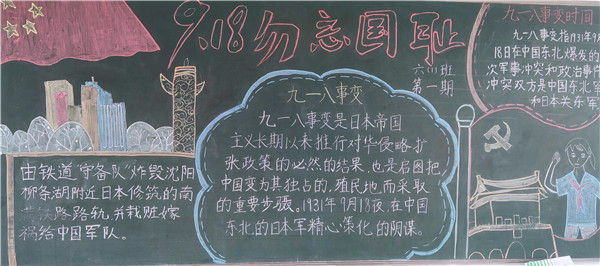 9.18勿忘国耻
六(1)班
第一期
九一八事变
九一八事变是日本帝国
主义长期以来推行对华侵略扩
张政策的必然的结果,也是启图把
中国变为其独占的,殖民地,而采取
的重要步骤。1931年9月18夜,在中国
东北,的日本军精心策化,的阴谋。
由铁道"守备队"炸毁沈阳
柳条湖附近日本修筑的南
满铁路路轨,并栽赃嫁
祸给中国军队。
九一八事变时间
九一八事变指1931年9月
18日在中国东北爆发的
次军事冲突和政治事件
冲突双方是中国东北军
和日本关东军